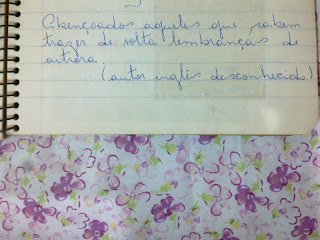 Abençoados aqueles que sabem
trazer de volta lembranças de
outrora
(autor inglês desconhecido)